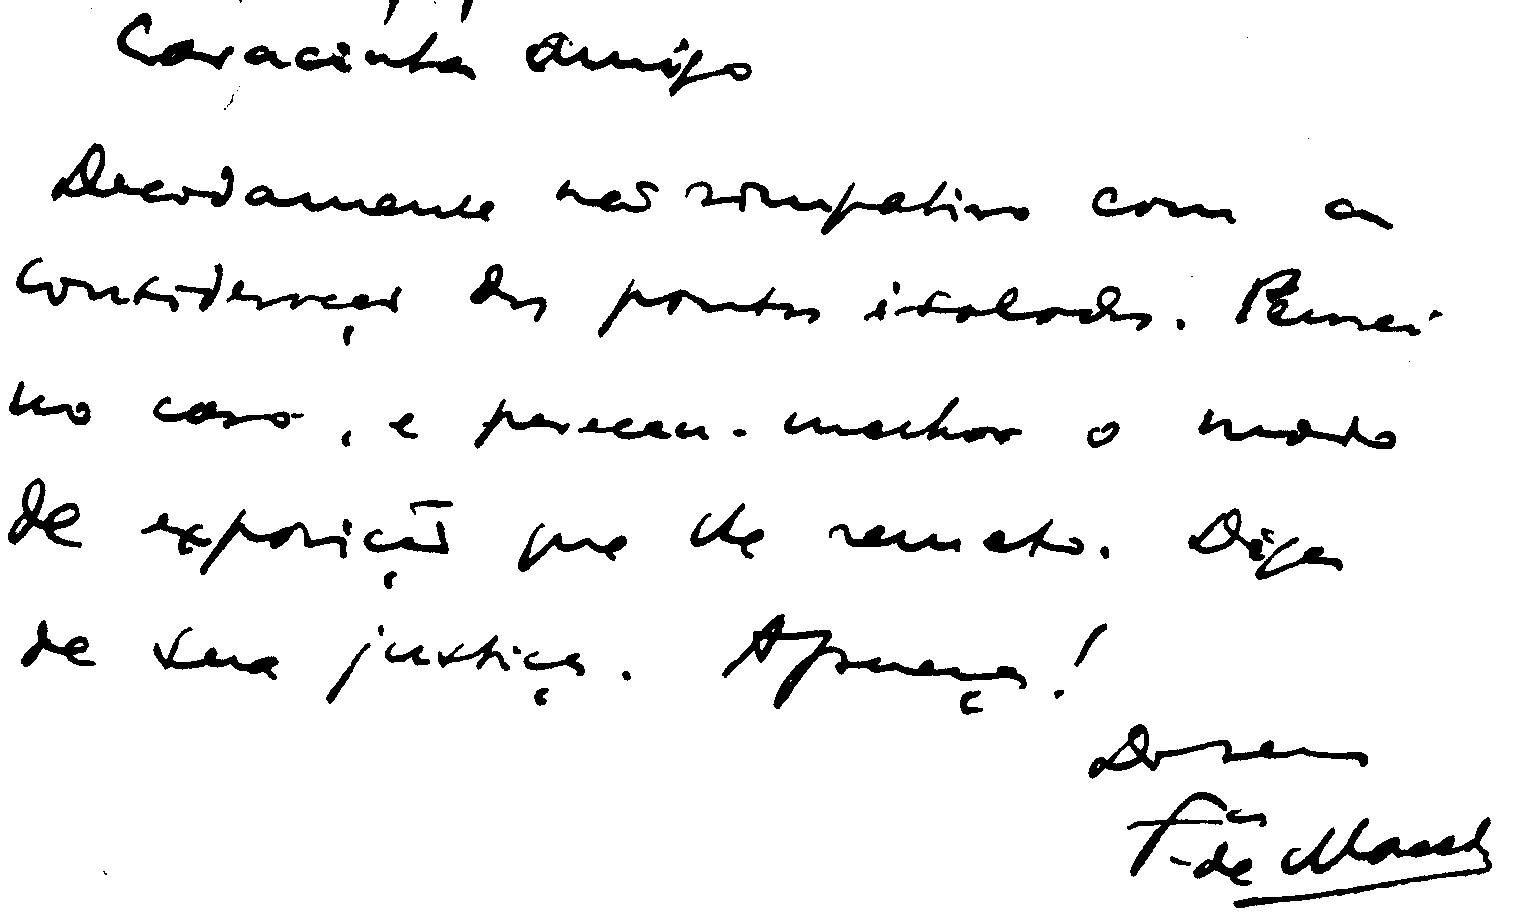 Caracinta amigo
Decidamente não simpatizo com a
consideração dos pontos isolados. Pensei
no caso, e pareceu-me melhor o modo
de exposição que lhe remeto. Diga
de sua justiça. Apareça!
Do seu
F. de Macedo